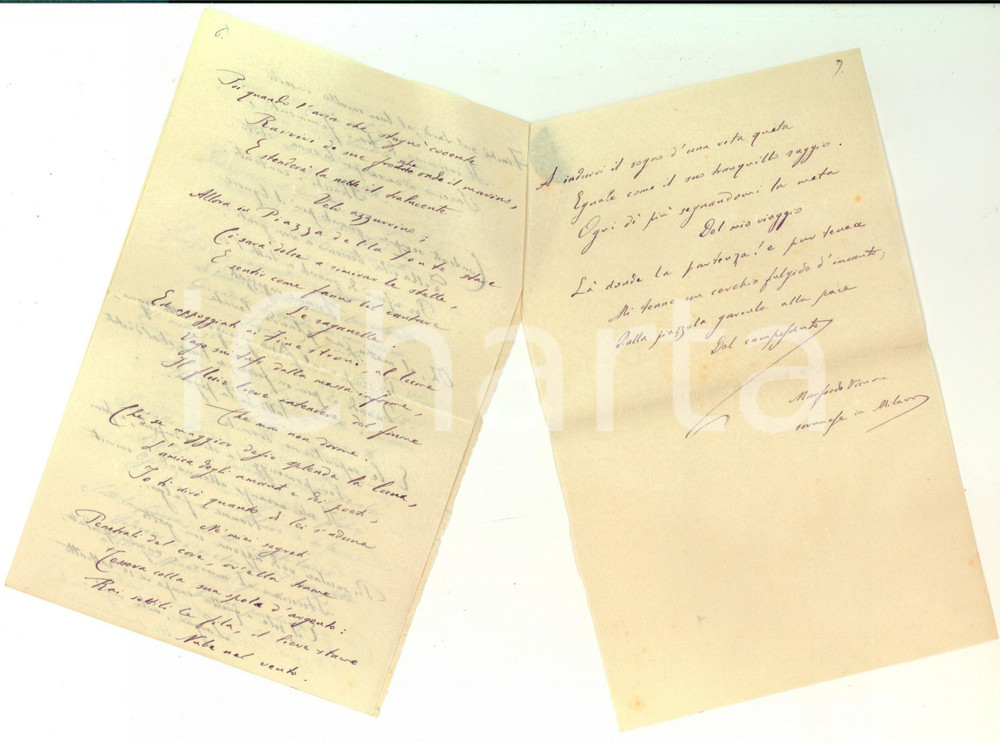 6.
Poi quando l'aria che stagnò cocente
Ravvivi de sue fredde onde il marino,
E stenderà la notte il tralucente
Velo azzurrino;
Allora in Piazza della fonte stare
Ci sarà dolce a rimirar le stelle,
E sentir come fanno lì cantare
Le raganelle.
Ed appoggiati ai finestroni, al lume
Vago mi dalla massi informe,
Il fluir lieve intendere del fiume
Che mai non dorme.
Chè se maggior desio splenda la luna,
L'amica degli amanti e dei poeti,
Io ti dirò quanto di lei s'aduna
Ne' miei segreti
Penetrali del core, ov'ella trame
Tesseva colla sua spola d'argento:
Rai sottili le fila, il lieve stame
Nube nel vento.
7.
A indurvi il sogno d'una vita queta
Eguale come il suo tranquillo raggio.
Ogni dì più segnandomi la meta
Del mio viaggio
Là donde la partenza! e pur tenea
Mi tenne un cerchio fulgido d'incanto;
Dalla piazzola garrula alla pace
Del camposanto
Manfredo Vanni
sovanese in Milano
iCharta